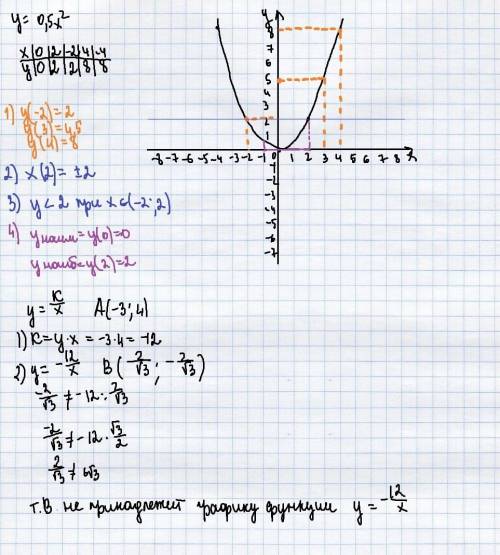 y = 0,5x²
x | 0 | 2 | -2 | 4 | -4
y | 0 | 2 | 2 | 8 | 8
1) y(-2) = 2
y(3) = 4,5
y(4) = 8
2) x(2) = ±2
3) y < 2 при x ∈ (-2; 2)
4) y наим = y(0) = 0
y наиб = y(2) = 2
y
8
7
6
5
4
3
2
1
-8 -7 -6 -5 -4 -3 -2 -1 0 1 2 3 4 5 6 7 8 x
-1
-2
-3
-4
-5
-6
-7
y = K/x A(-3; 4)
1) K = y·x = -3·4 = -12
2) y = -12/x B(2/√3; -2/√3)
-2/√3 ≠ -12 : 2/√3
-2/√3 ≠ -12 · √3/2
2/√3 ≠ 6√3
т.В не принадлежит графику функции y = -12/x